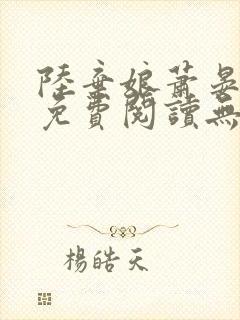 陸棄娘蕭晏
免費閱讀無
楊皓天